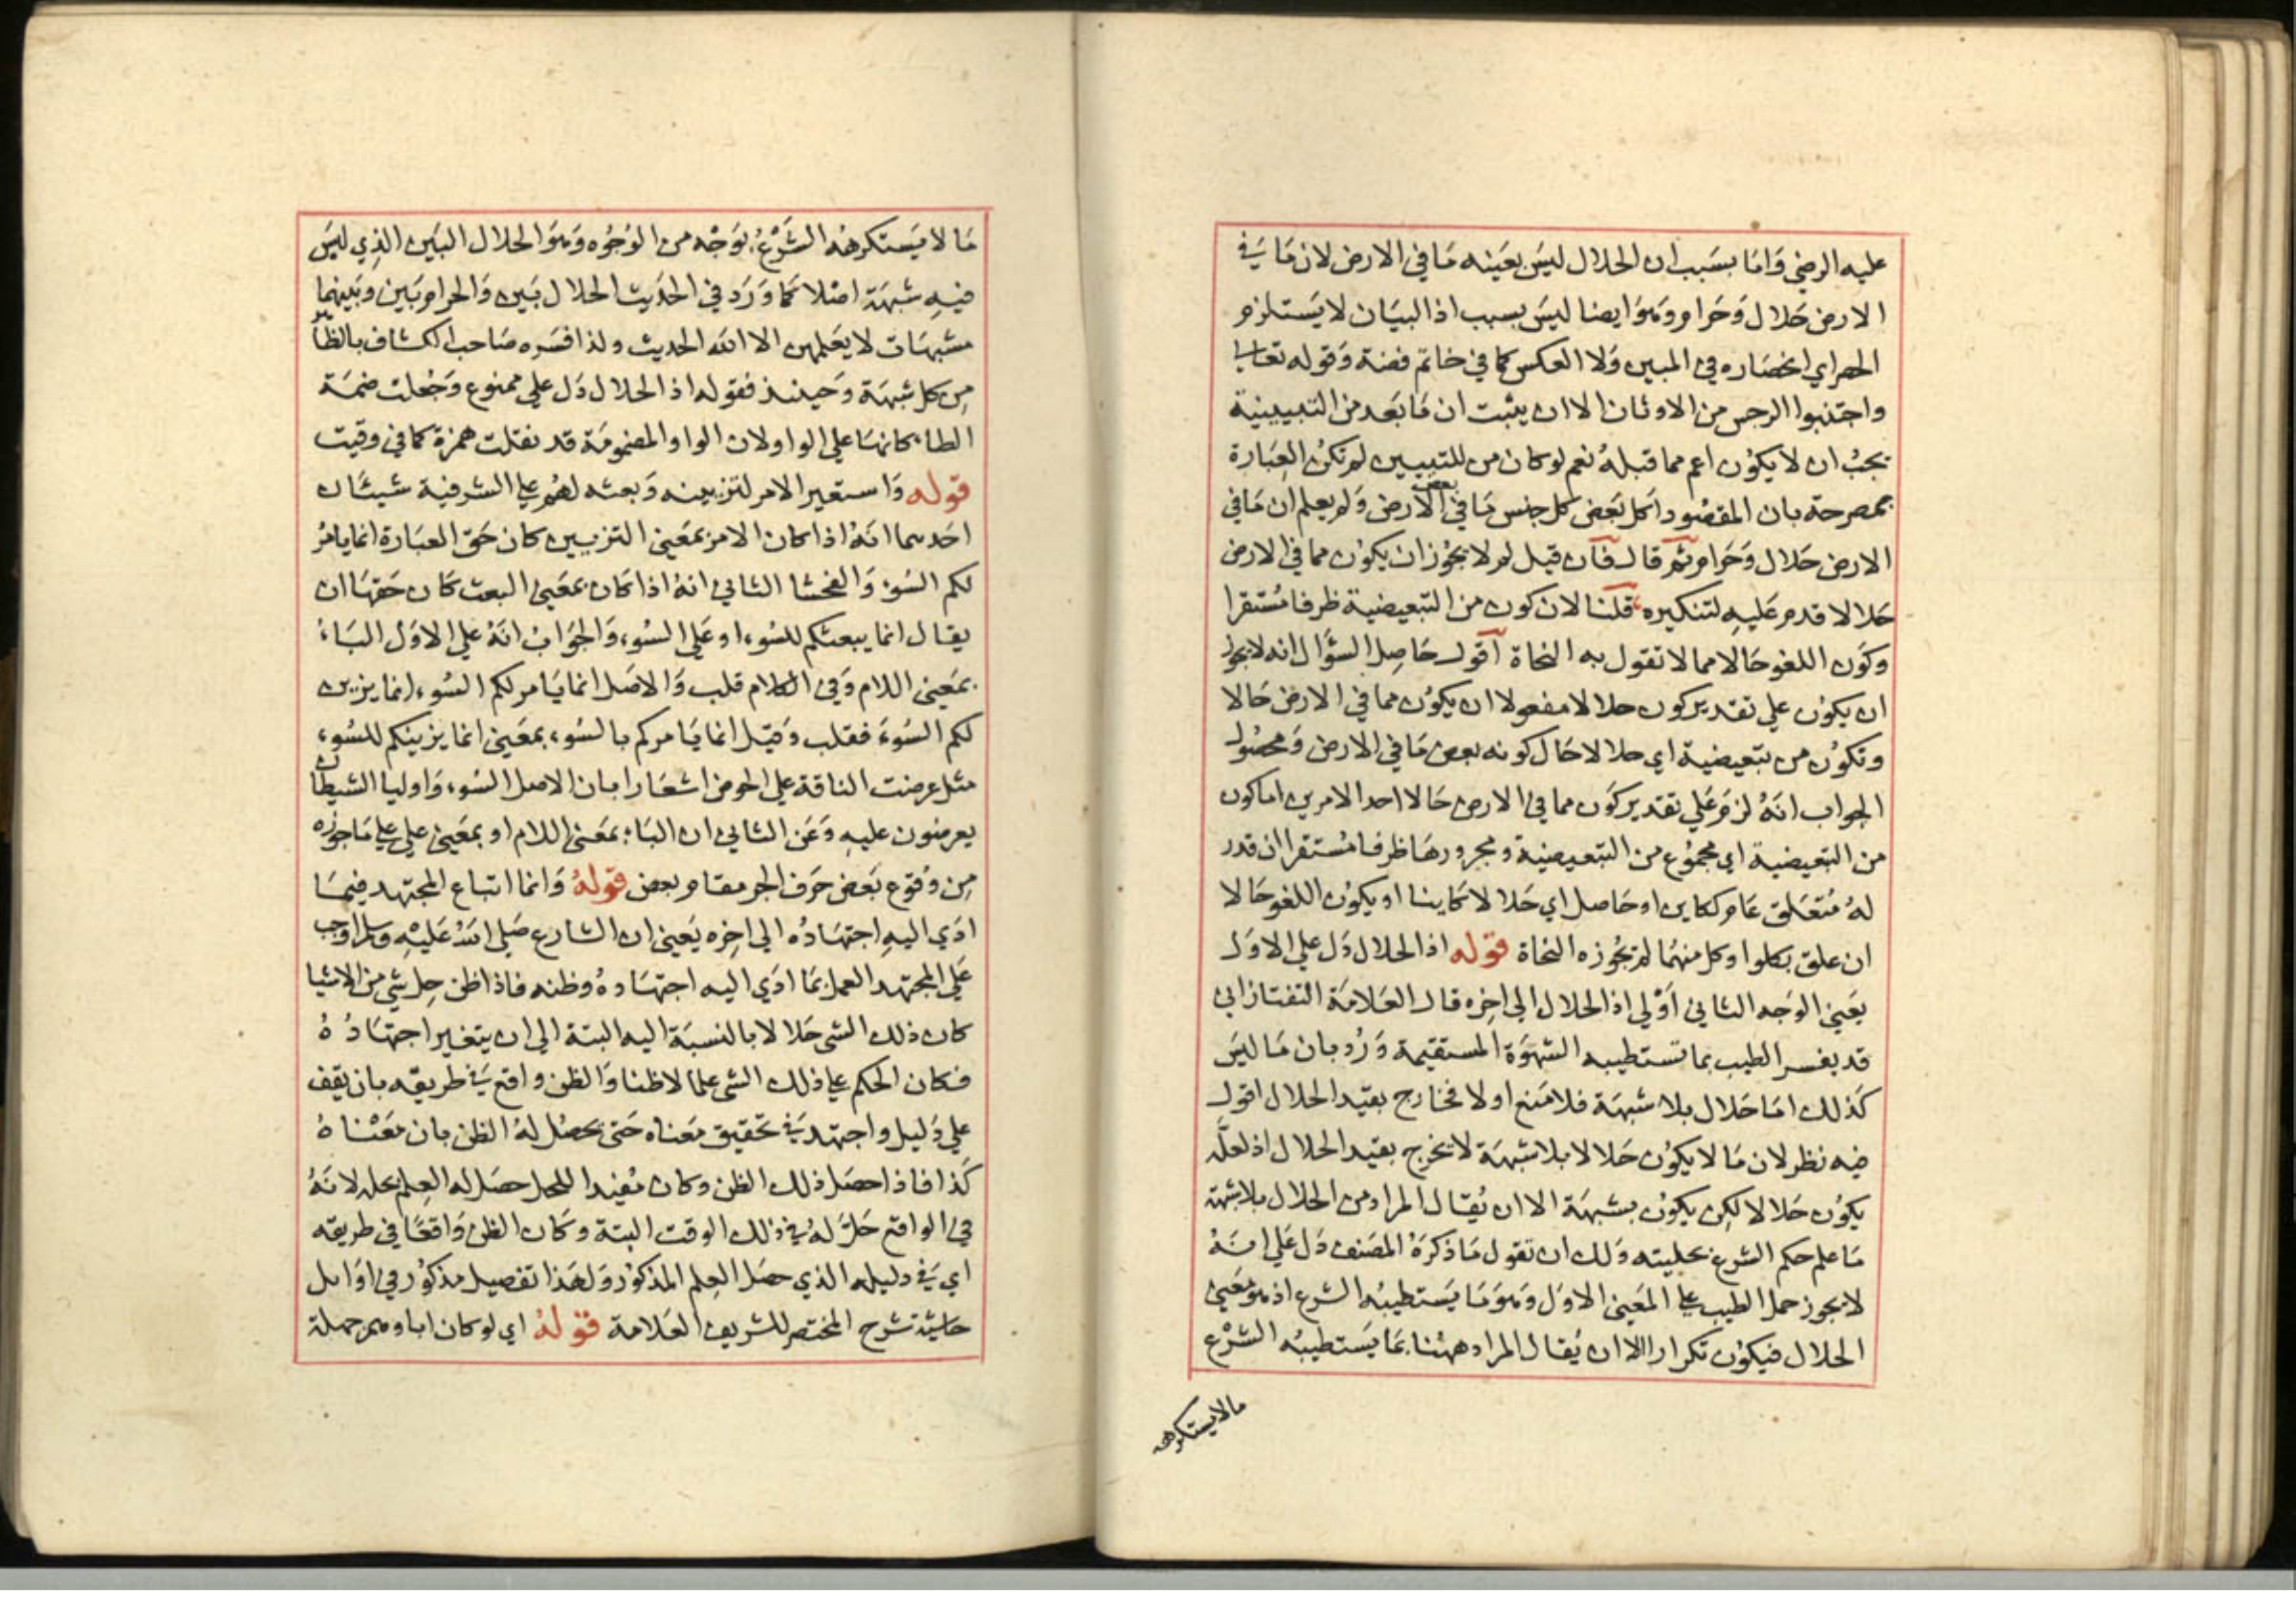 عليه الرضي وَامّا بسَبب ان الحلال ليسَ بعَينه مَا في الارض لان مَا في
الارض حَلال وَحَرام وَهوَ ايضا ليسَ بسبب اذ البيَان لا يَستلزم
الحصر اي انحصَاره في المبين وَلا العكس كما في خاتم فضة وَقوله تعالى
واجتنبوا الرجس من الاوثان الا ان يثبت ان مَا بَعد من التبيينية
يجبُ ان لا يكوُن اعم مما قبلهُ نعم لو كان من للتبيين لم تكن العِبَارة
بمصرحة بان المقصُود اكل بَعض كل جنس مَا في بعض الارض وَلم يعلم ان مَا في
الارض حَلال وَحَرام ثم قال فان قيل لم لا يجوُز ان يكوُن مما في الارض
حَلالا قدم عَليه لتنكيره قلنا لان كون من التبعيضية ظرفا مُستقرا
وكوَن اللغو حَالا مما لا تقول به النحاة اقول حَاصِل السؤَال انه لا يجوز
ان يكوُن علي تقدير كون حلالا مفعولا ان يكوُن مما في الارض حَالا
وتكوُن من تبَعيضية اي حلالا حَال كونه بعض مَا في الارض وَمحصُول
الجواب انهُ لزمَ عَلي تقدير كوَن مما في الارض حَالا احد الامرين اما كون
من التبعيضية اي مجموُع من التبعيضية ومجرورهَا ظرفا مُستقرا ان قدر
لهُ مُتعَلق عَام ككاين او حَاصل اي حَلالا كاينا او يكوُن اللغو حَالا
ان علق بكلوا وكل منهمَا لم يجوُزه النحاة قوله اذ الحلال دَل علي الاوَل
يعَني الوَجه الثاني اوْلي اذ الحلال الي اخِره قال العَلامَة التفتازاني
قد يفسر الطيب بما تستطيبه الشهوَة المستقيمة وَرُد بان مَا ليسَ
كذلك امَا حَلال بلا شبهَة فلا مَنع او لا فخارج بقيد الحلال اقول
فيه نظر لان مَا لا يكوُن حَلالا بلا شبهَة لا يخرج بقيد الحلال اذ لعلَّه
يكوُن حَلالا لكِن يكوُن بشبهَة الا ان يُقَال المراد من الحلال بلا شبهة
مَا علم حكم الشرع بحليته وَلك ان تقول مَا ذكرَهُ المصَنف دَل عَلي انهُ
لا يجوز حمل الطيب علي المَعنى الاوَل وَهوَ مَا يَستطيبُه الشرع اذ هو مَعنى
الحلال فيكوُن تكرارا الا ان يُقَال المراد ههُنا بمَا يَستطيبُه الشرْع
مالا يستكرهه
مَا لا يَستكرهُه الشَرْعُ بوَجْه من الوُجُوه وَهوَ الحلال البَين الذِي ليسَ
فيهِ شبهَة اصْلا كمَا وَرَد في الحَديث الحلال بَين وَالحرام بَين وبَينهما
مشبهَات لا يَعلمهن الا الله الحديث ولذا فسَره صَاحب الكشاف بالطاهر
مِن كل شبهَة وَحينئذ فقوله اذ الحلال دَل علي ممنوع وَجُعلت ضمَة
الطاء كانهَا علي الواو لان الواو المضموُمَة قد نقلت همزة كما في وقيت
قوله وَاستعير الامر لتزيينه وَبعثه لهُم علي الشر فيه شيئَان
احَدهما انهُ اذا كان الامر بمَعنى التزيين كان حَق العبَارة انما يامرُ
لكم السُوء وَالفحشا الثاني انهُ اذا كان بمَعنى البعث كان حَقهَا ان
يقال انما يبعثكم للسُوء او عَلي السُوء وَالجَوَابُ انَهُ علي الاوَل البَاءُ
بمَعنى اللام وَفي الكلام قلب وَالاصَل انما يَامر لكم السُوء انما يزين
لكم السُوءَ فقلب وَقيَل انما يَامركم بالسُوء بمَعنى انما يزينكم للسُوء
مثل عرضت الناقة علي الحوض اشعَارا بان الاصل السُوء وَاوليا الشيطان
يعرضون عليهِ وَعَن الثاني ان البَاء بمَعنى اللام او بمَعنى علي علي مَا جوزه
مِن وُقوع بَعض حَرف الجر مقام بعض قولهُ وَانما اتباع المجتهد فيمَا
ادَي اليهِ اجتهَادُه الى اخِره يَعني ان الشارع صَلي الله عَليْهِ وسلم اوجب
عَلي المجتهد العمل بمَا ادَي اليه اجتهَادهُ وظنه فاذا ظن حِل شي من الاشيا
كان ذلك الشي حَلالا بالنسبَة اليه البتة الي ان يتغير اجتهَادُهُ
فكان الحكم علي ذلك الشي علما لا ظنا وَالظن واقع في طريقه بان يقف
علي دَليل واجتهد في تحقيق مَعناه حَتى يحصُل لهُ الظن بان مَعْنَاهُ
كَذا فاذا حصَل ذلك الظن وكان مُفيدا للحل حصَل له العِلم بحله لانَهُ
في الواقع حَلَّ لهُ في ذلك الوقت البتة وكان الظن وَاقعًا في طريقه
اي في دليله الذي حصَل العِلم المذكوُر وَلهَذا تفصيل مذكوُر في اوَايل
حاشية شرح المختصر للشريف العَلامة قوْلهُ اي لو كان اباوهم جملة